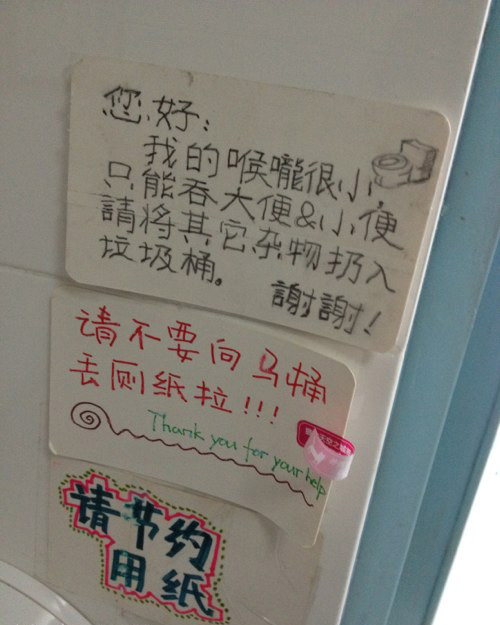 您好:
我的喉嚨很小,
只能吞大便&小便
請將其它杂物扔入
垃圾桶。
謝謝!
请不要向马桶
丢厕纸拉!!!
Thank you for your help
请节约
用纸